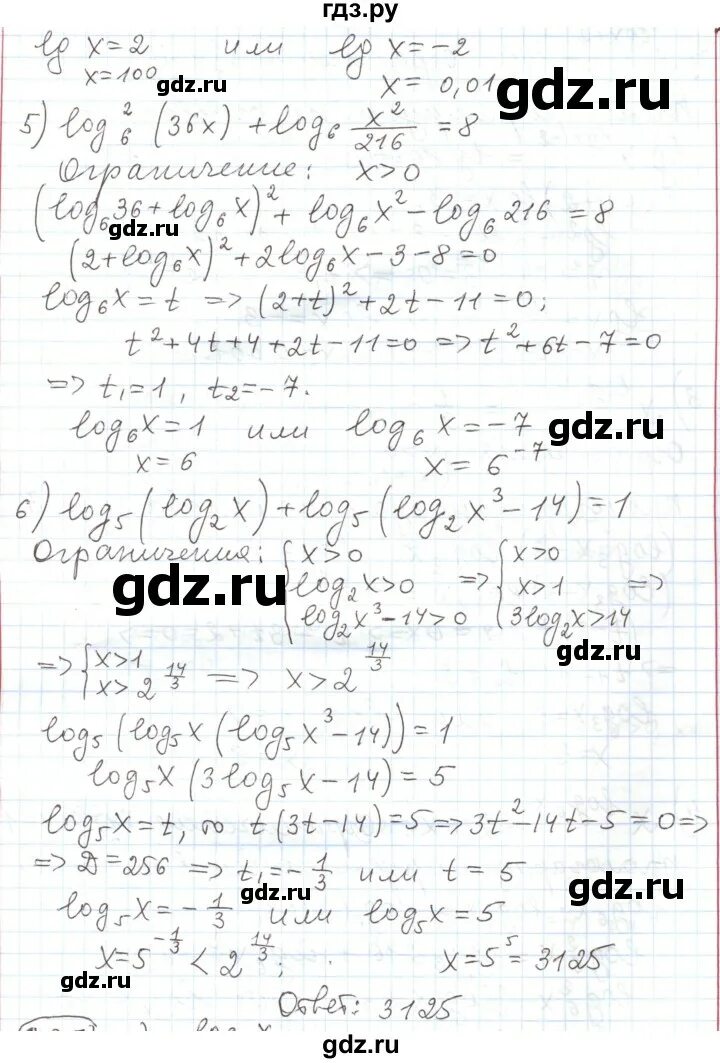 гдз.ру
lg x = 2 или lg x = -2
x = 100 x = 0,01
gdz.ru gdz.ru
5) log₆² (36x) + log₆ x²/216 = 8
Ограничение: x > 0
(log₆36 + log₆x)² + log₆x² - log₆216 = 8
gdz.ru
(2 + log₆x)² + 2log₆x - 3 - 8 = 0
log₆x = t => (2+t)² + 2t - 11 = 0;
t² + 4t + 4 + 2t - 11 = 0 => t² + 6t - 7 = 0
=> t₁ = 1, t₂ = -7.
log₆x = 1 или log₆x = -7
gdz.ru
x = 6 x = 6⁻⁷
gdz.ru
6) log₅(log₂x) + log₅(log₂x³ - 14) = 1
Ограничения: { x > 0 => { x > 0 =>
log₂x > 0 x > 1
log₂x³ - 14 > 0 3log₂x > 14
gdz.ru
gdz.ru
=> { x > 1 => x > 2^(14/3)
x > 2^(14/3)
log₅(log₅x(log₅x³ - 14)) = 1
log₅x(3log₅x - 14) = 5
log₅x = t, ∞ t(3t - 14) = 5 => 3t² - 14t - 5 = 0 =>
=> D = 256 => t₁ = -1/3 или t = 5
gdz.ru gdz.ru
log₅x = -1/3 или log₅x = 5
x = 5^(-1/3) < 2^(14/3); x = 5⁵ = 3125
gdz.ru gdz.ru
Ответ: 3125